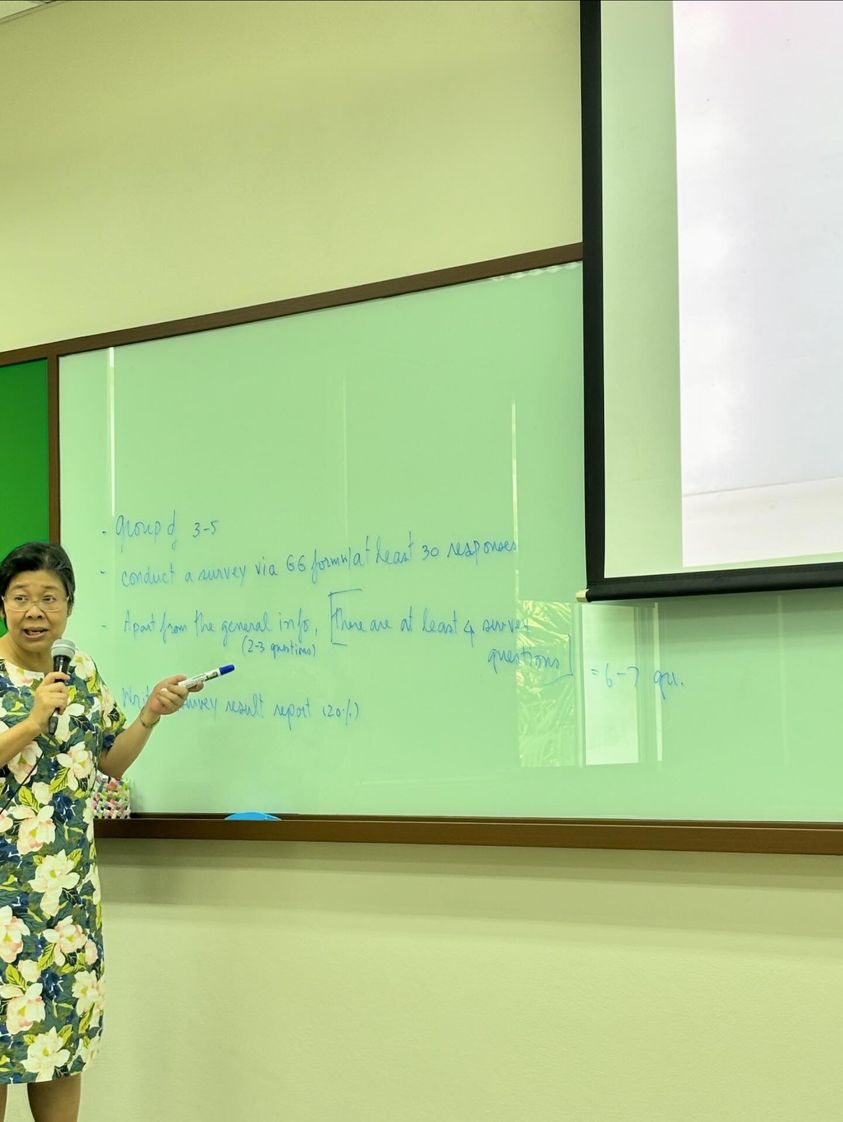 - group of 3-5
- conduct a survey via GG form/at least 30 responses
- Apart from the general info, [there are at least 4 survey
(2-3 questions)
questions] = 6-7 qu.
survey result report (20%)